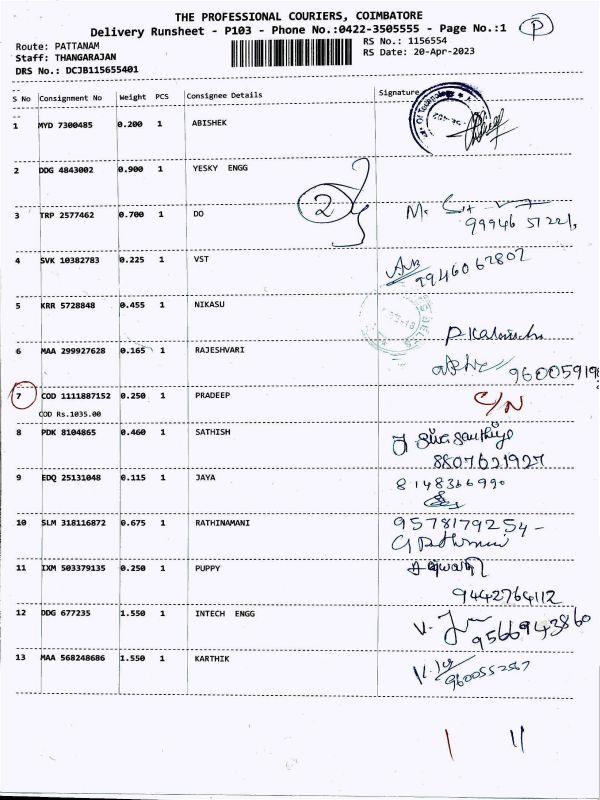 THE PROFESSIONAL COURIERS, COIMBATORE
Delivery Runsheet - P103 - Phone No.:0422-3505555 - Page No.:1 P
Route: PATTANAM RS No.: 1156554
Staff: THANGARAJAN RS Date: 20-Apr-2023
DRS No.: DCJB115655401
S No Consignment No Weight PCS Consignee Details Signature
1 MYD 7300485 0.200 1 ABISHEK
2 DDG 4843002 0.900 1 YESKY ENGG
2
3 TRP 2577462 0.700 1 DO M.
99946 51221,
4 SVK 10382783 0.225 1 VST
9946062802
5 KRR 5728848 0.455 1 NIKASU
6 MAA 299927628 0.165 1 RAJESHVARI
960059198
7 COD 1111887152 0.250 1 PRADEEP C/N
COD Rs.1035.00
8 PDK 8104865 0.460 1 SATHISH
8807621927
9 EDQ 25131048 0.115 1 JAYA 8148366990
10 SLM 318116872 0.675 1 RATHINAMANI 9578179254-
11 IXM 503379135 0.250 1 PUPPY
9442764112
12 DDG 677235 1.550 1 INTECH ENGG V.
9566943860
13 MAA 568248686 1.550 1 KARTHIK
9600552567